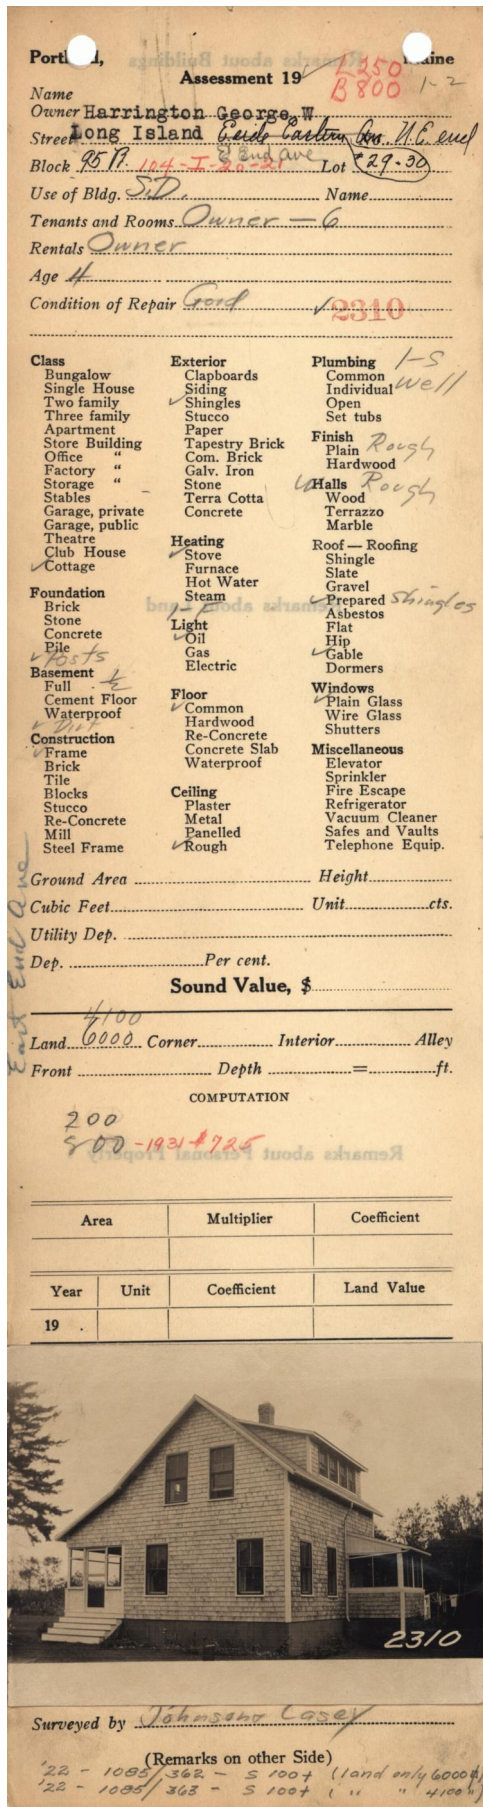 Portland, Maine
L 250
Assessment 19
B 800 1-2
Name
Owner Harrington George W
Street Long Island N.E. end
E End Ave
Block 95A 104-I-20-21 Lot 29-30
Use of Bldg. S.D. Name
Tenants and Rooms Owner - 6
Rentals Owner
Age 4
Condition of Repair Good ✓ 2310
Class
Bungalow
Single House
Two family
Three family
Apartment
Store Building
Office "
Factory "
Storage "
Stables
Garage, private
Garage, public
Theatre
Club House
✓ Cottage
Foundation
Brick
Stone
Concrete
Pile
✓ Posts
Basement
Full ½
Cement Floor
Waterproof
✓ Dirt
Construction
✓ Frame
Brick
Tile
Blocks
Stucco
Re-Concrete
Mill
Steel Frame
Exterior
Clapboards
Siding
✓ Shingles
Stucco
Paper
Tapestry Brick
Com. Brick
Galv. Iron
Stone
Terra Cotta
Concrete
Heating
✓ Stove
Furnace
Hot Water
Steam
Light
✓ Oil
Gas
Electric
Floor
✓ Common
Hardwood
Re-Concrete
Concrete Slab
Waterproof
Ceiling
Plaster
Metal
Panelled
✓ Rough
Plumbing 1-S
Common
Individual Well
Open
Set tubs
Finish
Plain Rough
Hardwood
✓ Halls Rough
Wood
Terrazzo
Marble
Roof — Roofing
Shingle
Slate
Gravel
✓ Prepared Shingles
Asbestos
Flat
Hip
✓ Gable
Dormers
Windows
✓ Plain Glass
Wire Glass
Shutters
Miscellaneous
Elevator
Sprinkler
Fire Escape
Refrigerator
Vacuum Cleaner
Safes and Vaults
Telephone Equip.
East End Ave
Ground Area Height
Cubic Feet Unit cts.
Utility Dep.
Dep. Per cent.
Sound Value, $
4100
Land 6000 Corner Interior Alley
Front Depth = ft.
COMPUTATION
200
800 - 1931 - $725
Area Multiplier Coefficient
Year Unit Coefficient Land Value
19
2310
Surveyed by Johnson & Casey
(Remarks on other Side)
'22 - 1085/362 - S 100+ (land only 6000
'22 - 1085/363 - S 100+ ( " " 4100